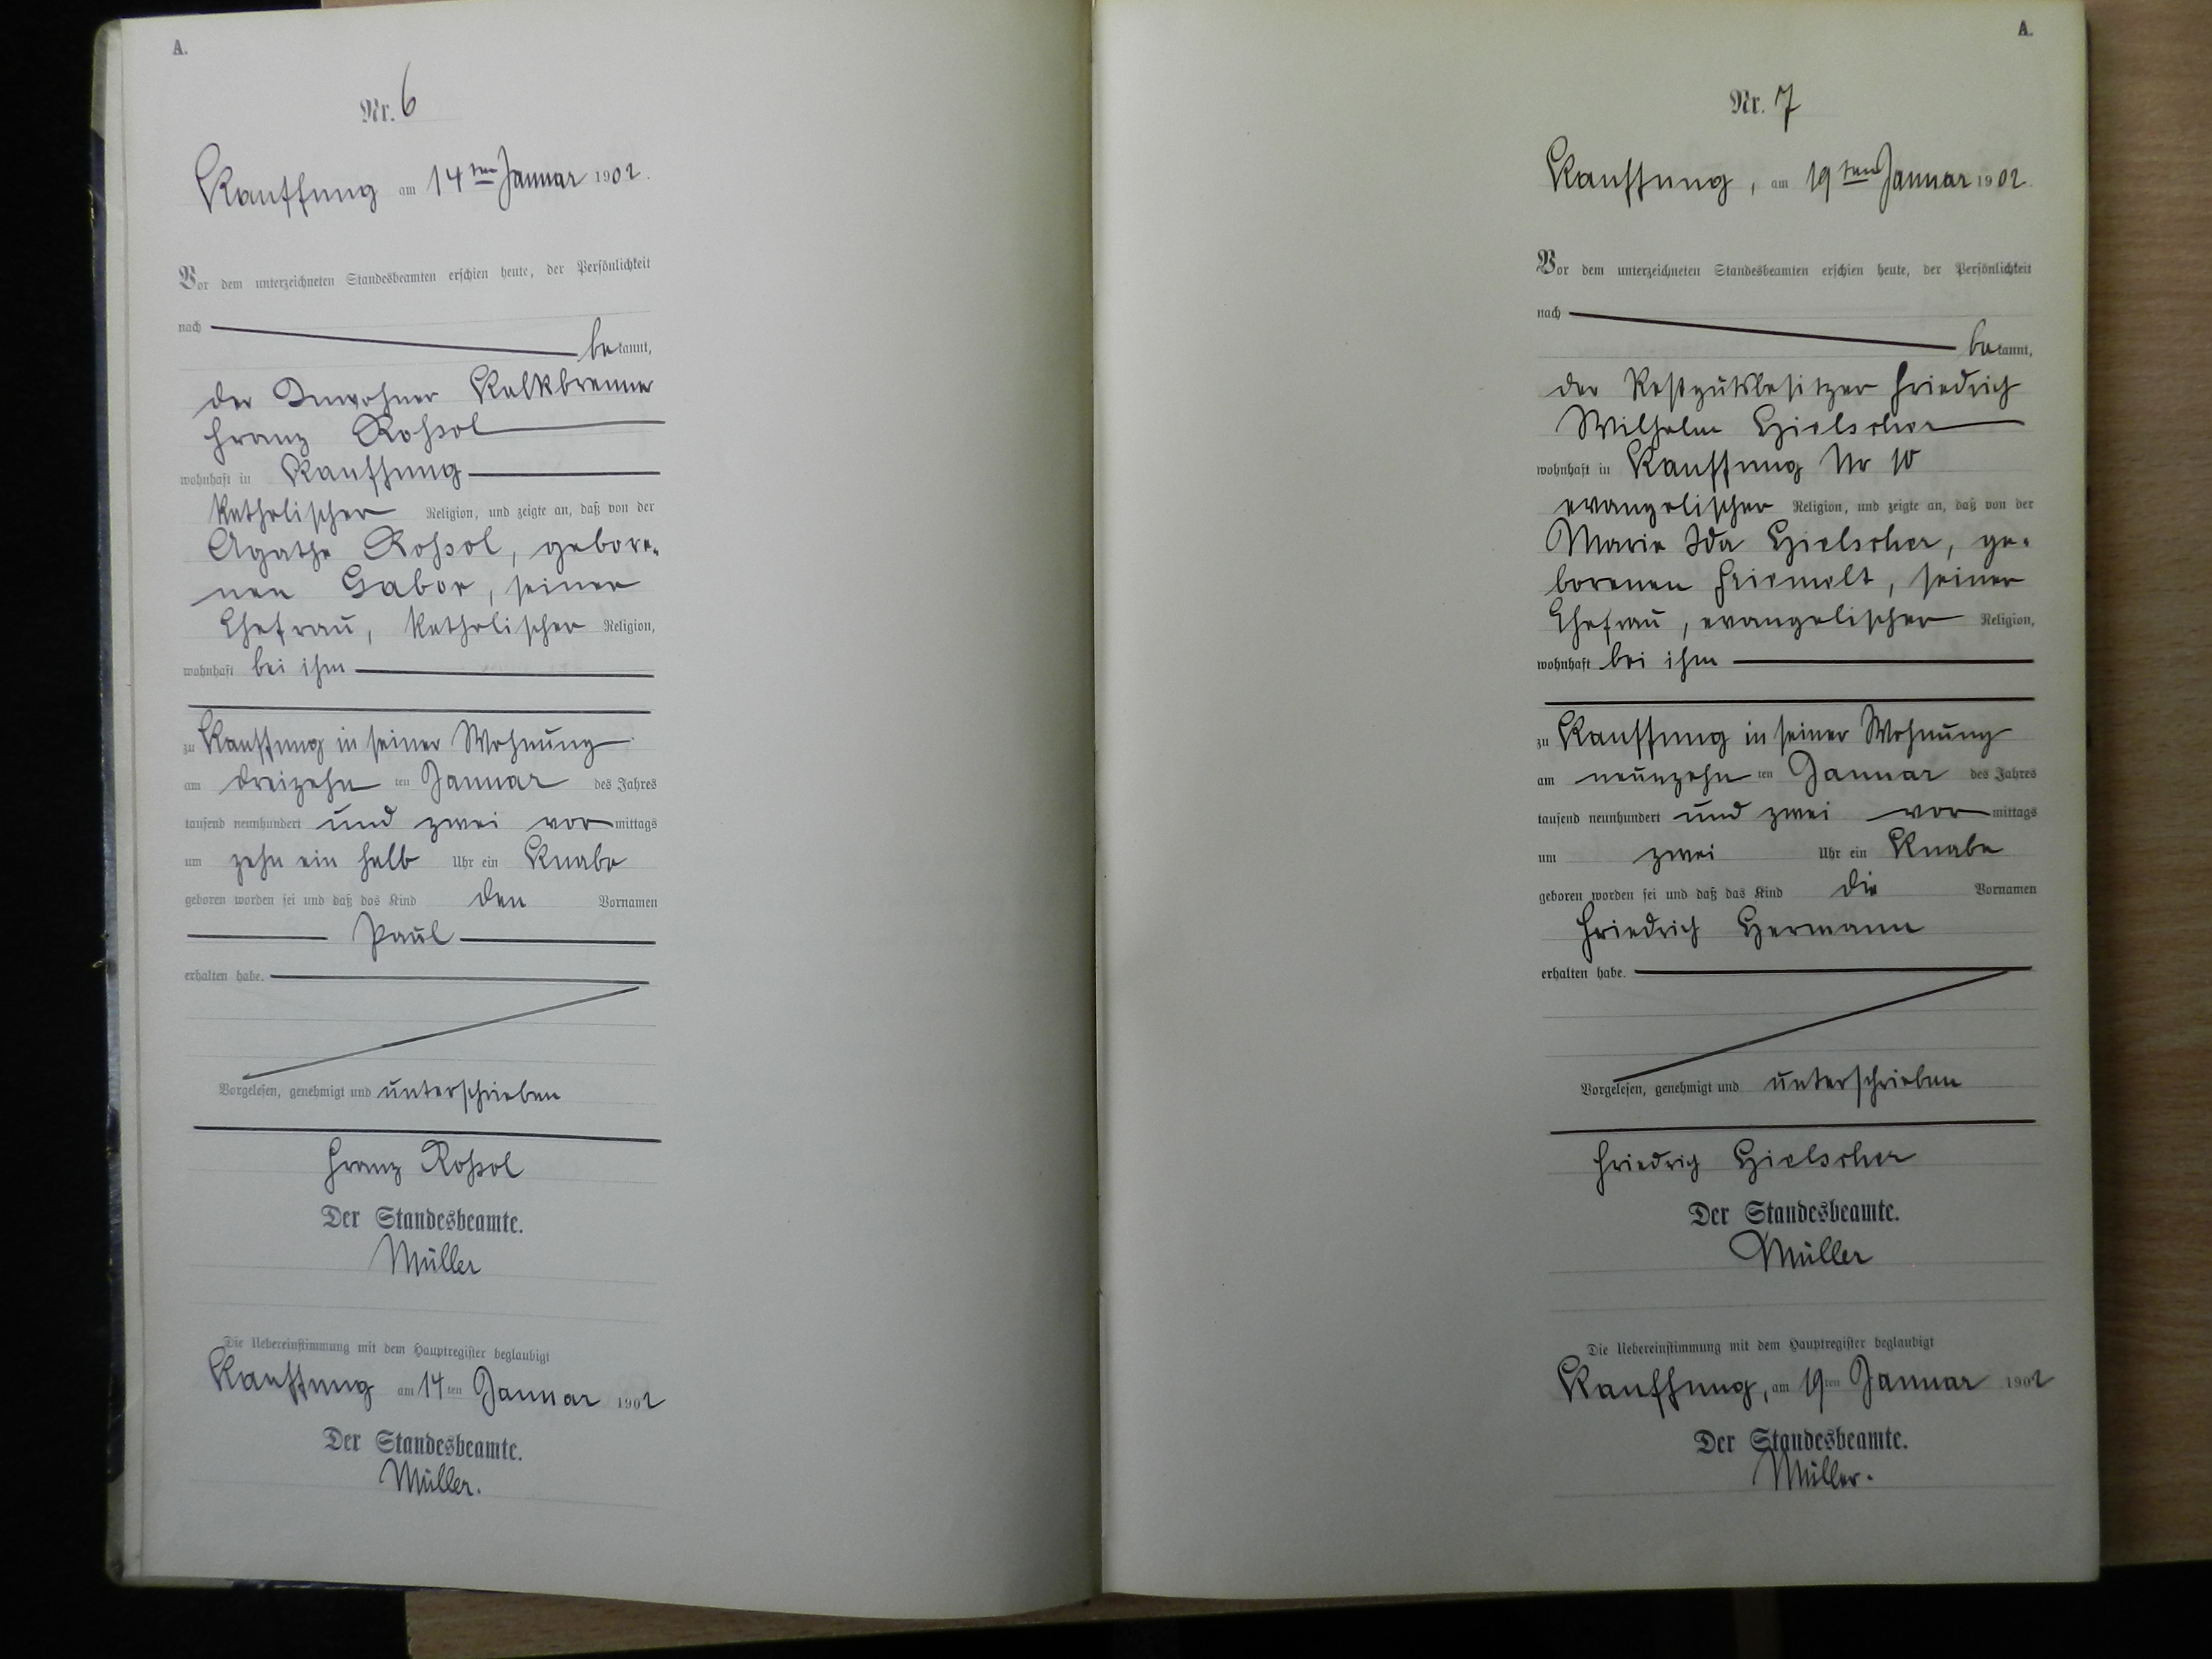 A.
Nr. 6
Kauffung am 14ten Januar 1902.
Vor dem unterzeichneten Standesbeamten erschien heute, der Persönlichkeit
nach
bekannt,
der Inwohner Kalkbrenner
Franz
wohnhaft in Kauffung
katholischer Religion, und zeigte an, daß von der
Agathe gebore-
nen Gabor, seiner
Ehefrau, katholischer Religion,
wohnhaft bei ihm
zu Kauffung in seiner Wohnung
am dreizehn ten Januar des Jahres
tausend neunhundert und zwei vor mittags
um zehn ein halb Uhr ein Knabe
geboren worden sei und daß das Kind den Vornamen
Paul
erhalten habe.
Vorgelesen, genehmigt und unterschrieben
Franz
Der Standesbeamte.
Müller
Die Uebereinstimmung mit dem Hauptregister beglaubigt
Kauffung am 14ten Januar 1902
Der Standesbeamte.
Müller.
A.
Nr. 7
Kauffung, am 19ten Januar 1902.
Vor dem unterzeichneten Standesbeamten erschien heute, der Persönlichkeit
nach
bekannt,
der Restgutsbesitzer Friedrich
Wilhelm Hielscher
wohnhaft in Kauffung No 10
evangelischer Religion, und zeigte an, daß von der
Marie Ida Hielscher, ge-
borenen Friemelt, seiner
Ehefrau, evangelischer Religion,
wohnhaft bei ihm
zu Kauffung in seiner Wohnung
am neunzehn ten Januar des Jahres
tausend neunhundert und zwei vor mittags
um zwei Uhr ein Knabe
geboren worden sei und daß das Kind die Vornamen
Friedrich Hermann
erhalten habe.
Vorgelesen, genehmigt und unterschrieben
Friedrich Hielscher
Der Standesbeamte.
Müller
Die Uebereinstimmung mit dem Hauptregister beglaubigt
Kauffung, am 19ten Januar 1902
Der Standesbeamte.
Müller.